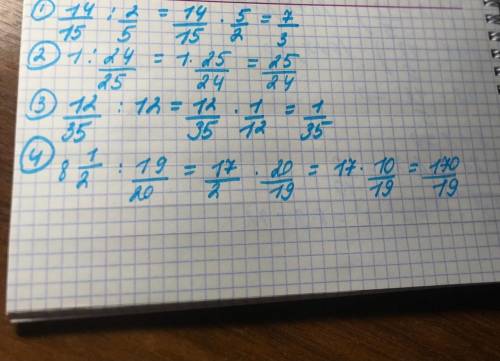 ① 14/15 : 2/5 = 14/15 · 5/2 = 7/3
② 1 : 24/25 = 1 · 25/24 = 25/24
③ 12/35 : 12 = 12/35 · 1/12 = 1/35
④ 8 1/2 : 19/20 = 17/2 · 20/19 = 17 · 10/19 = 170/19